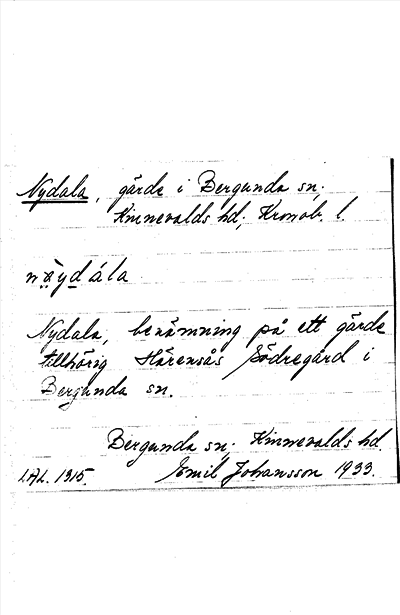 Nydala, gärde i Bergunda sn;
Kinnevalds hd; Kronob. l.
nä̤ydála
Nydala, benämning på ett gärde
tillhörig Härensås Södregård i
Bergunda sn.
Bergunda sn; Kinnevalds hd.
LAL. 1315. Emil Johansson 1933.